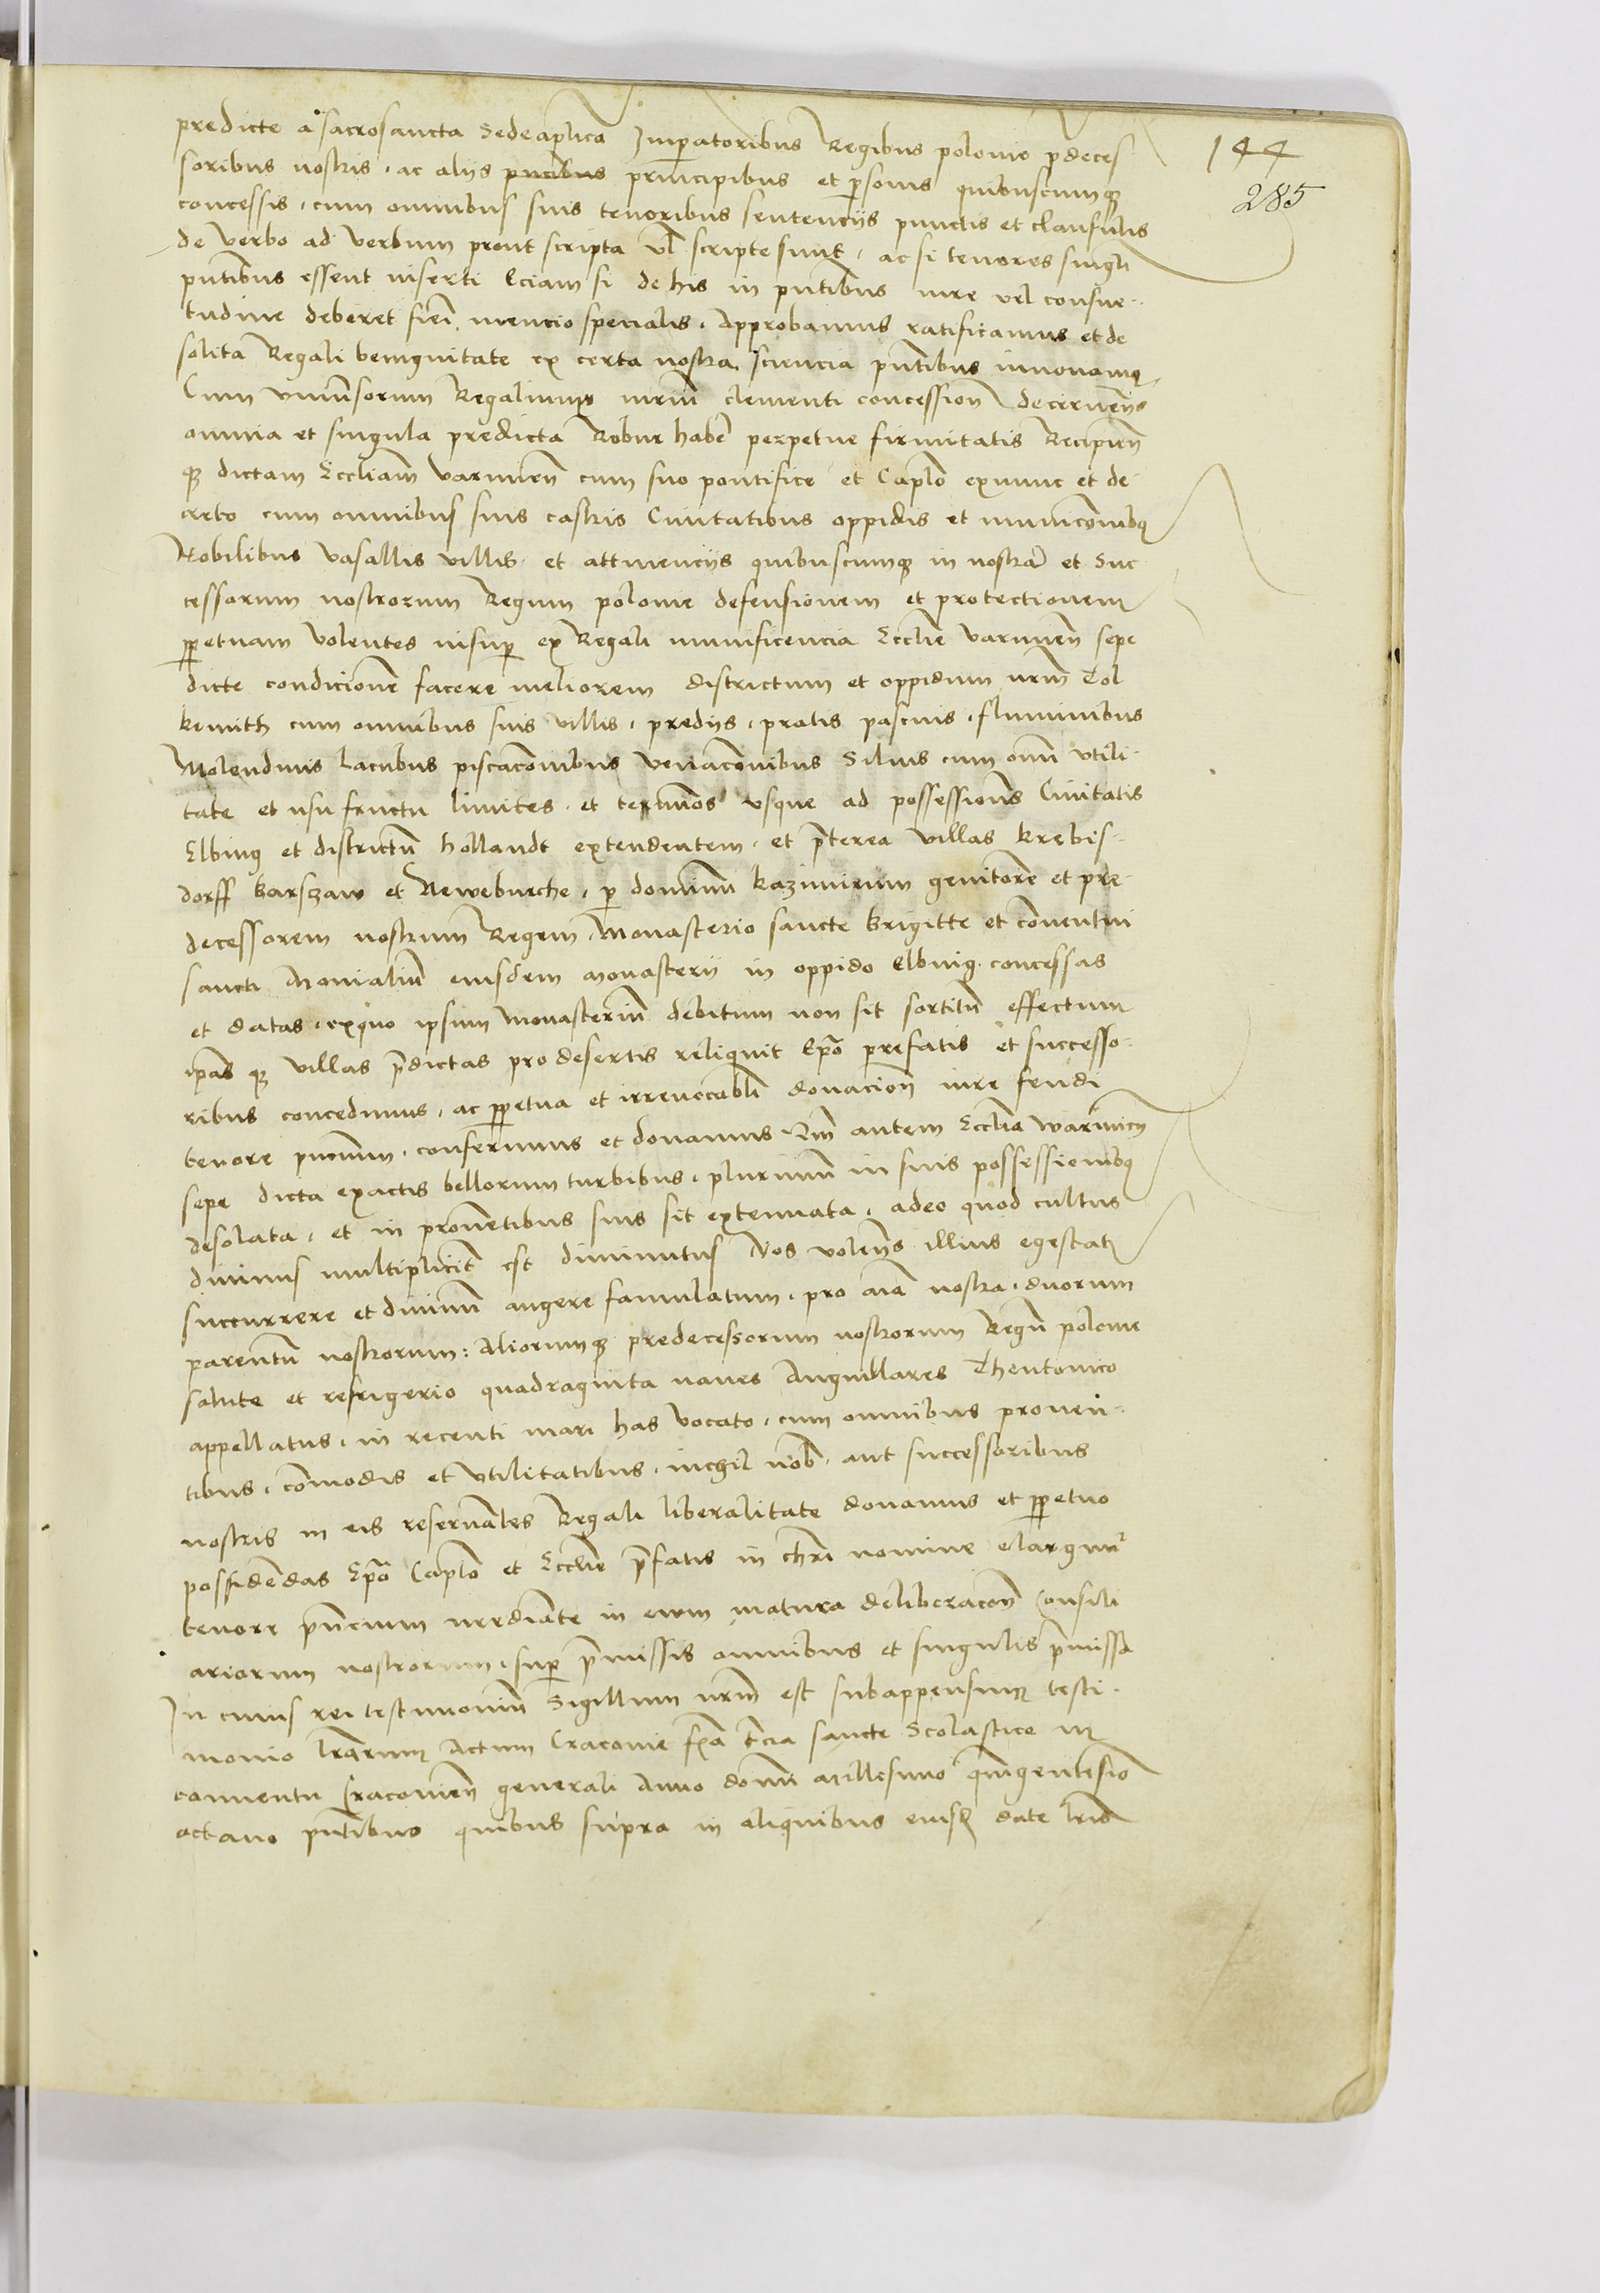 144
285
predicte a sacrosancta Sede aplica Imperatoribus Regibus polonie pdeces
soribus nostris, ac aliis pncibus principibus et personis quibuscumq3
concessis, cum omnibus suis tenoribus sentenciis punctis et clausulis
de verbo ad verbum prout scripta vl scripte sunt, ac si tenores singli
pntibus essent inserti Eciam si de his in pntibus iure vel consue-
tudine deberet fieri mencio specialis, Approbamus ratificamus et de
solita Regali benignitate ex certa nostra sciencia pntibus innovamq
Cum Regalium nrm clementi concession decernens
omnia et singula predicta Robur haber perpetue firmitatis Recipien
q3 dictam Eccliam varmien cum suo pontifice et Caplo exnunc et de
creto cum omnibus suis castris Civitatibus oppidis et municonibq
Nobilibus vasallis villis et attinenciis quibuscumq3 in nostra et Suc
cessorum nostrorum Regum polonie defensionem et protectionem
ppetuam volentes insup ex Regali munificencia Ecclie varmien sepe
dicte condicione facere meliorem districtum et oppidum nrm Tol
kemith cum omnibus suis villis, prediis, pratis pascuis, fluminibus
Molendinis lacubus piscaconibus venaconibus Siluis cum omi vtili-
tate et usu fructu limites, et terminos vsque ad possessiones Civitatis
Elbing et districtu hollandt extendentem, et preterea villas krebis-
dorff karszaw et Neweburche, p dominu kazimirum genitore et pre-
decessorem nostrum Regem, Monasterio sancte brigitte et conventui
sancti Monialiu eiusdem monasterii in oppido Elbing concessas
et datas, exquo ipsum monasteriu debitum non sit sortitu effectum
ipas q3 villas predictas pro desertis reliquit Epo prefatis et successo-
ribus concedimus, ac ppetua et irrevocabli donacion iure feudi
tenore pncium, conferimus et donamus. Qm autem Ecclia warmien
sepe dicta exactis bellorum turbibus, plurimu in suis possessionibq
desolata, et in proventibus suis sit extenuata, adeo quod cultus
divinus multiplicit est diminutus Nos volens illius egestati
succurrere et divinu augere famulatum, pro aia nostra, duorum
parentu nostrorum: Aliorumq3 predecessorum nostrorum Regu polonie
salute et refrigerio quadraginta naves Anguillares Theutonico
appellatus, in recenti mari has vocato, cum omnibus proven-
tibus, comodis et vtilitatibus, nichil nob aut successoribus
nostris in eis reservantes Regali liberalitate donamus et ppetuo
possidendas Epo Caplo et Ecclie prefatis in chri nomine elargimr
tenore pncium mediante in eum matura deliberacon Consili
ariorum nostrorum, sup premissis omnibus et singulis premissa
In cuius rei testimoniu Sigillum nrm est subappensum testi-
monio lrarum Actum Cracovie fia tercia sancte Scolastice in
conventu Cracovien generali Anno domi Millesimo quingentesio
octavo pntibus quibus supra in aliquibus eiusd date lris